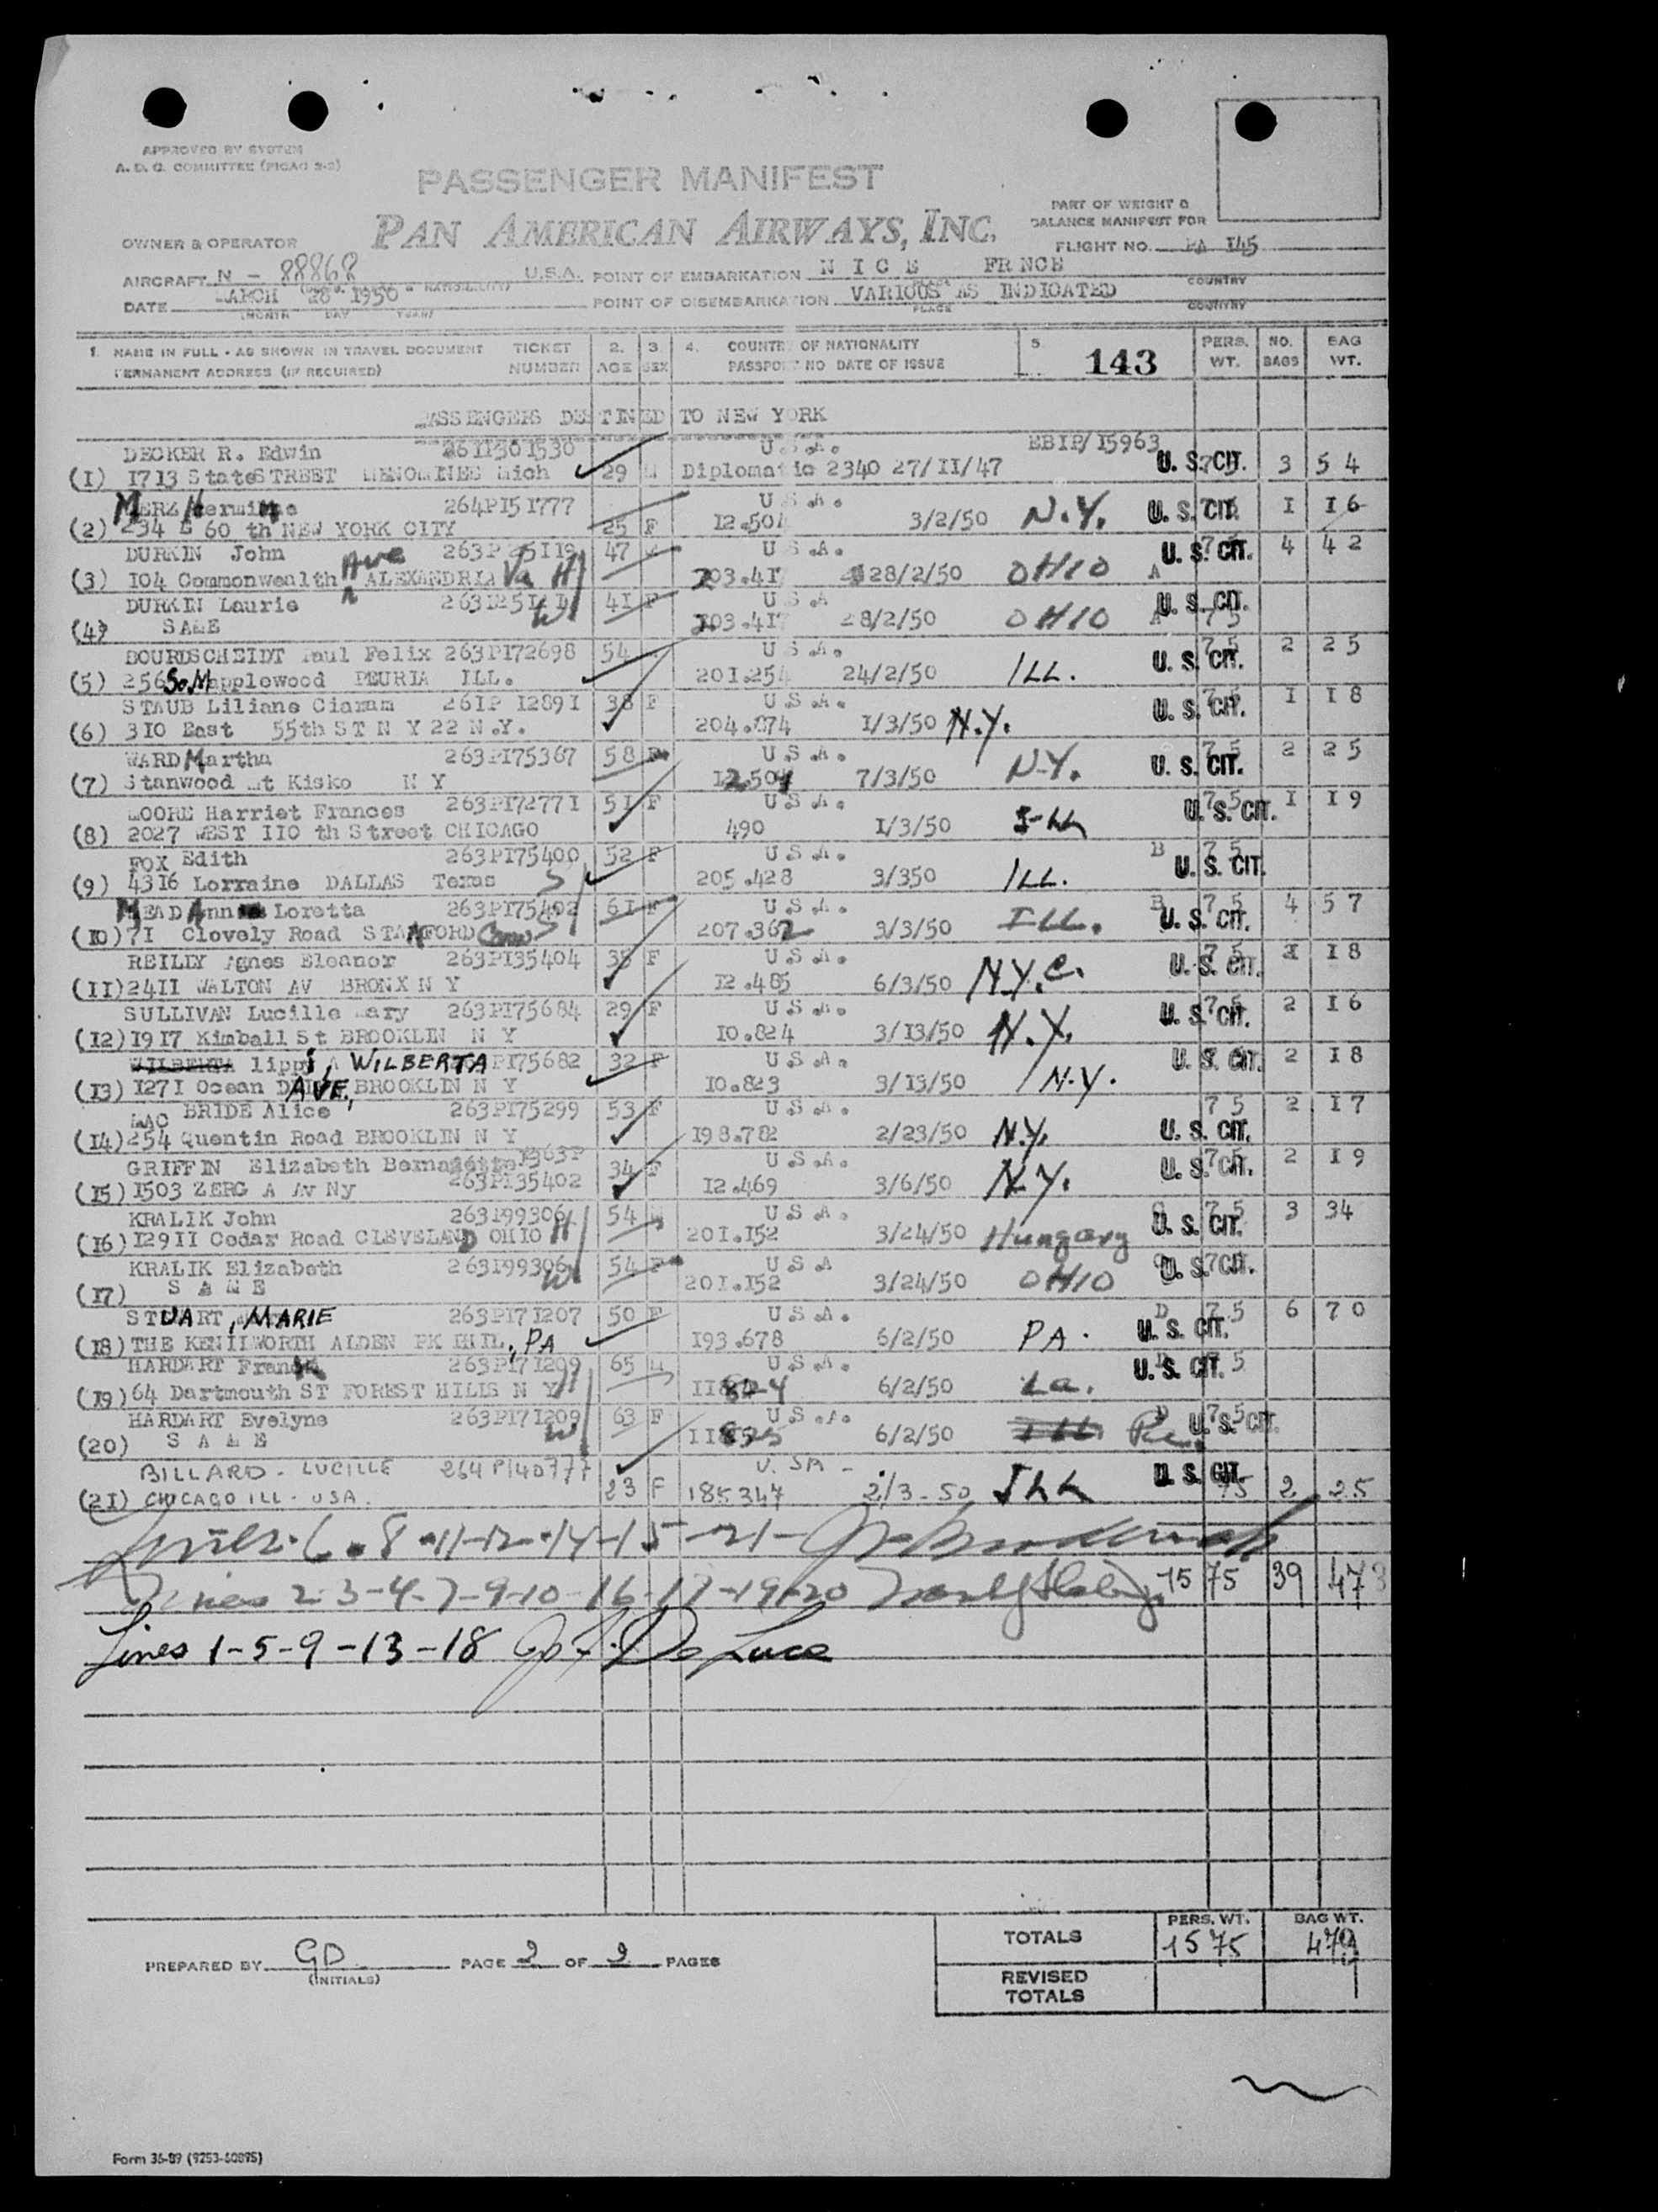 APPROVED BY SYSTEM
A. D. C. COMMITTEE (PICAO 2-2)
PASSENGER MANIFEST
PAN AMERICAN AIRWAYS, INC.
PART OF WEIGHT &
BALANCE MANIFEST FOR
OWNER & OPERATOR
FLIGHT NO. PA 145
AIRCRAFT N - 88868 U.S.A. POINT OF EMBARKATION NICE FRNCE COUNTRY
DATE MARCH 28 1950 POINT OF DISEMBARKATION VARIOUS AS INDICATED
(MONTH DAY YEAR) PLACE COUNTRY
1. NAME IN FULL - AS SHOWN IN TRAVEL DOCUMENT TICKET 2. 3. 4. COUNTRY OF NATIONALITY 5. PERS. NO. BAG
PERMANENT ADDRESS (IF REQUIRED) NUMBER AGE SEX PASSPORT NO DATE OF ISSUE 143 WT. BAGS WT.
PASSENGERS DESTINED TO NEW YORK
DECKER R. Edwin U.S.A. EBIP/15963
(1) 1713 StateSTREET MENOMINEE Mich 29 M Diplomatic 2340 27/11/47 U. S. CIT. 3 54
MERZ Hermine 264P151777 U.S.A.
(2) 234 E 60 th NEW YORK CITY 25 F 3/2/50 N.Y. U. S. CIT. 1 16
DURKIN John 47 U.S.A. U. S. CIT. 4 42
(3) 104 Commonwealth Ave ALEXANDRIA Va H 28/2/50 OHIO A
DURKIN Laurie 41 F U S A U. S. CIT.
(4) SAME W 28/2/50 OHIO A 75
BOURDSCHEIDT Paul Felix 263P172698 54 U.S.A. 75 2 25
(5) 256 So. Mapplewood PEURIA ILL. 201.254 24/2/50 ILL. U. S. CIT.
STAUB Liliane Ciaram 261P 12891 38 F U.S.A. 75 1 18
(6) 310 East 55th ST N Y 22 N.Y. 204.074 1/3/50 N.Y. U. S. CIT.
WARD Martha 263P175367 58 F U.S.A. 75 2 25
(7) Stanwood Mt Kisko N Y 7/3/50 N.Y. U. S. CIT.
MOORE Harriet Frances 263P172771 51 F U.S.A. 75 1 19
(8) 2027 WEST 110 th Street CHICAGO 490 1/3/50 Ill U. S. CIT.
FOX Edith 263P175400 52 F U S.A. B 75
(9) 4316 Lorraine DALLAS Texas S 205.428 3/350 ILL. U. S. CIT.
MEAD Ann Loretta 263P175402 61 F U.S.A. B 75 4 57
(10) 71 Clovely Road STANFORD Conn S 207.362 3/3/50 ILL. U. S. CIT.
REILLY Agnes Eleanor 263P135404 35 F U.S.A. 75 1 18
(11) 2411 WALTON AV BRONX N Y 12.485 6/3/50 N.Y.C. U. S. CIT.
SULLIVAN Lucille Mary 263P175684 29 F U.S.A. 75 2 16
(12) 1917 Kimball St BROOKLIN N Y 10.824 3/13/50 N.Y. U. S. CIT.
WILBERTA lippi, WILBERTA P175682 32 F U.S.A. U. S. CIT. 2 18
(13) 1271 Ocean AVE, BROOKLIN N Y 10.823 3/13/50 N.Y.
MAC BRIDE Alice 263P175299 53 F U.S.A. 75 2 17
(14) 254 Quentin Road BROOKLIN N Y 198.782 2/23/50 N.Y. U. S. CIT.
GRIFFIN Elizabeth Bernadette 34 F U.S.A. 75 2 19
(15) 1503 ZERG A Av Ny 263P135402 12.469 3/6/50 N.Y. U. S. CIT.
KRALIK John 54 M U S A. 75 3 34
(16) 12911 Cedar Road CLEVELAND OHIO H 201.152 3/24/50 Hungary U. S. CIT.
KRALIK Elizabeth 54 F U S A
(17) S A M E W 201.152 3/24/50 OHIO U. S. CIT.
STUART, MARIE 263P171207 50 F U.S.A. D 75 6 70
(18) THE KENILWORTH ALDEN PK PHIL, PA 193.678 6/2/50 PA. U. S. CIT.
HARDART Frank 263P171209 65 M U.S.A. D 75
(19) 64 Dartmouth ST FOREST HILLS N Y H 6/2/50 La. U. S. CIT.
HARDART Evelyne 263P171209 63 F U.S.A. D 75
(20) S A M E W 6/2/50 U. S. CIT.
BILLARD - LUCILLE 264P140777 U. SA -
(21) CHICAGO ILL - USA. 23 F 185347 2/3-50 Ill U. S. CIT. 75 2 25
Lines 6-8-11-12-14-15-21-
Lines 2-3-4-7-9-10-16-17-19-20 1575 39 473
Lines 1-5-9-13-18 De Luca
TOTALS PERS. WT. 1575 BAG WT. 479
PREPARED BY GD PAGE 2 OF 2 PAGES
(INITIALS)
REVISED
TOTALS
Form 36-89 (9253-60895)